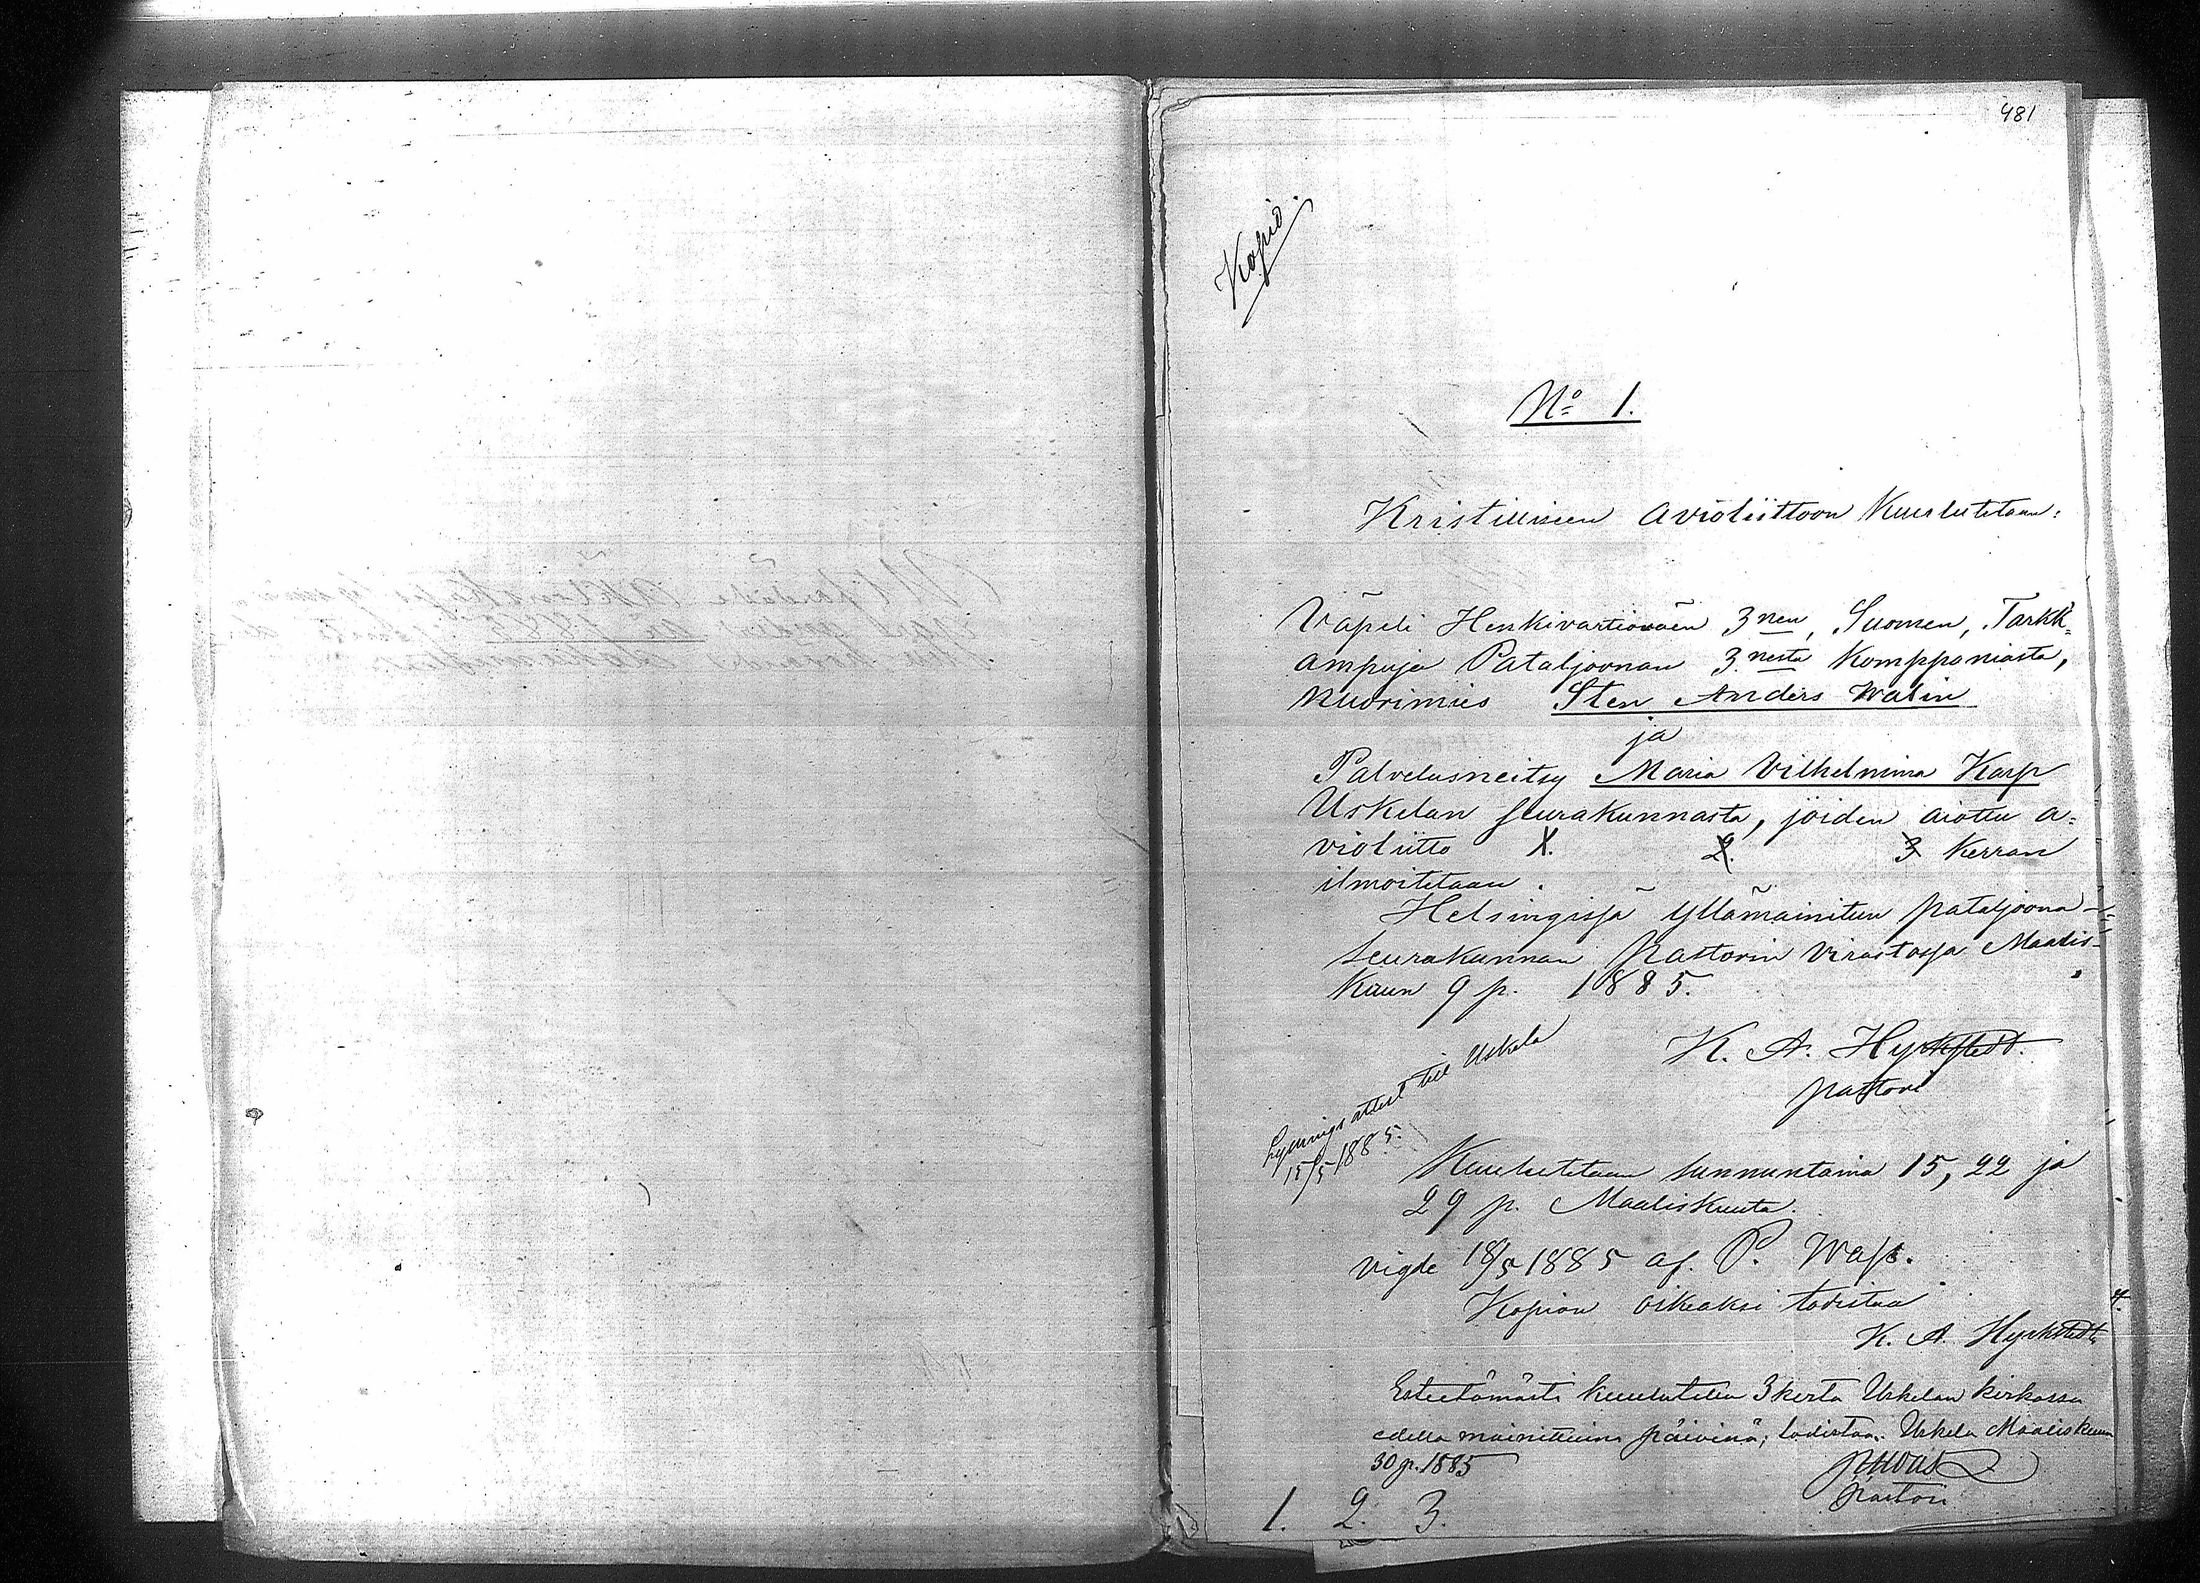 481
Kopio.
No 1.
Kristilliseen avioliittoon kuulutetaan:
Väpeli Henkivartioväen 3nen, Suomen, Tarkk=
ampuja Pataljoonan 3.nesta Komppaniasta,
nuorimies Sten Anders Walin
ja
Palvelusneitsy Maria Vilhelmina Karp
Uskelan seurakunnasta, joiden aiottu a=
violiitto 1. 2. 3 kerran
ilmoitetaan.
Helsingissä yllämainitun pataljoona-
seurakunnan pastorin virastossa Maalis-
kuun 9 p. 1885.
K. A. Hyrkstedt.
pastori
Lysnings attest till Uskela
15/5 1885.
Kuulutetaan sunnuntaina 15, 22 ja
29 p. Maaliskuuta.
vigde 18/5 1885 af P.
Kopion oikeaksi todistaa
K. A. Hyrkstedt
Esteetömästi kuulutettu 3 kerta Uskelan kirkossa
edellä mainittuina päivinä; todistaa. Uskela Maaliskuun
30 p. 1885
pastori
1. 2. 3.